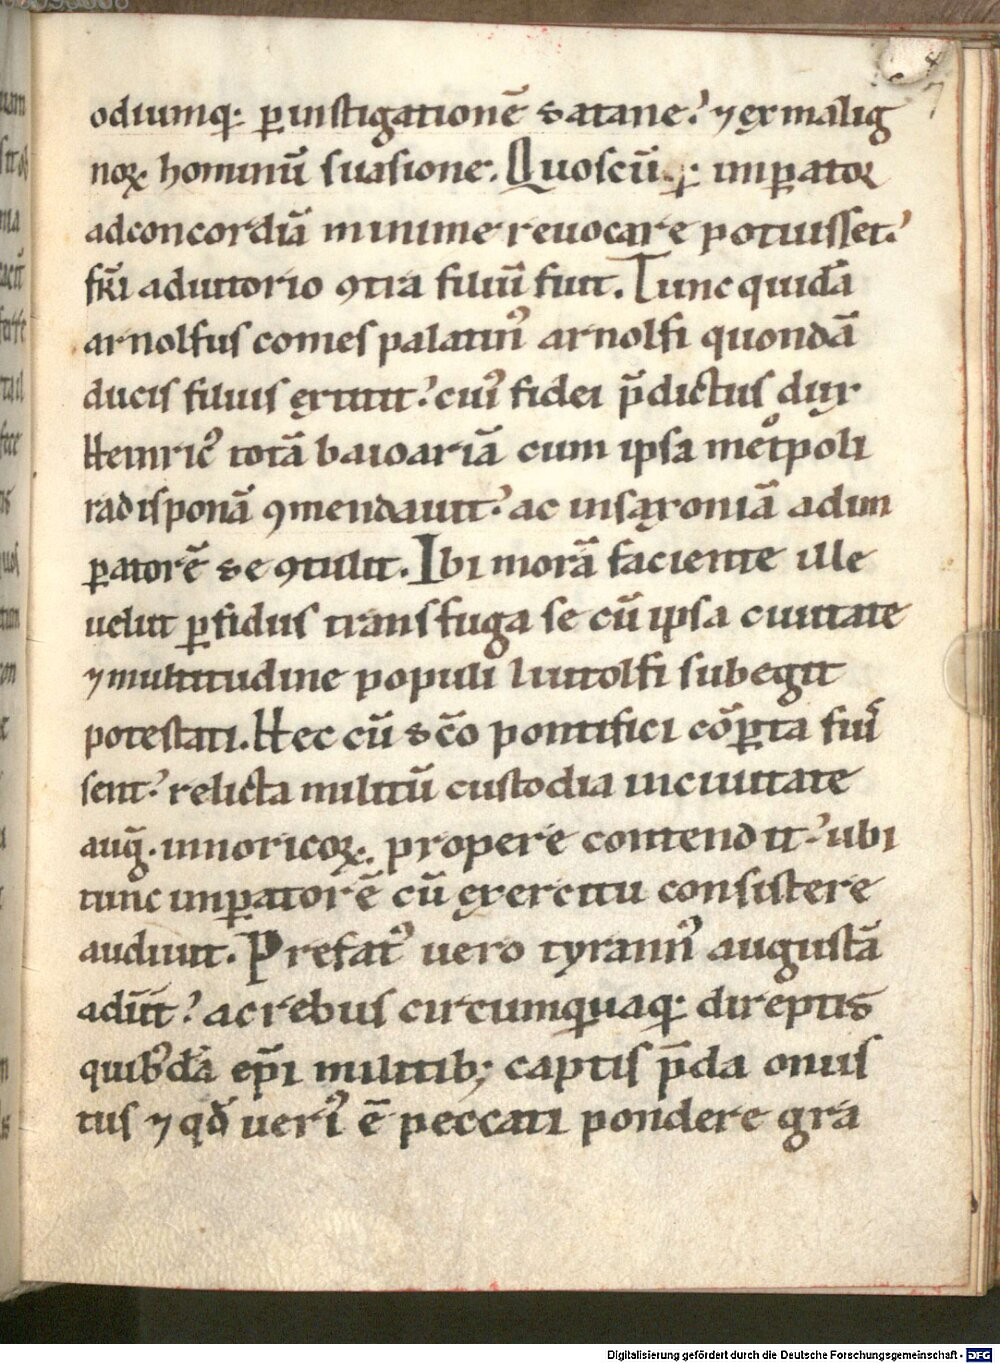 odiumq: ꝑ instigationē satane? ⁊ ex malig
noꝝ hominū suasione. Quoscū imꝑator
ad concordiā minime reuocare potuisset?
fr̄i adiutorio ꝯtra filiū fuit. Tunc quidā
arnolfus comes palatinꝰ arnolfi quondā
ducis filius extitit? cuiꝰ fidei p̄dictus dux
Heinricꝰ totā baioariā cum ipsa metͦpoli
radisponā ꝯmendauit? ac in saxoniā ad im
ꝑatorē se ꝯtulit. Ibi morā faciente ille
uelut ꝑfidus transfuga se cū ipsa ciuitate
⁊ multitudine populi liutolfi subegit
potestati. Hec cū sc̄o pontifici cōꝑta fuis
sent? relicta militū custodia in ciuitate
aug̅. in noricoꝝ. propere contendit? ubi
tunc imꝑatorē cū exercitu consistere
audiuit. Prefatꝰ uero tyrannꝰ augustā
adiit? ac rebus circumquaq: direptis
quibꝰdā ep̄i militib; captis p̄da onus
tus ⁊ qđ ueriꝰ ē peccati pondere gra
Digitalisierung gefördert durch die Deutsche Forschungsgemeinschaft - DFG